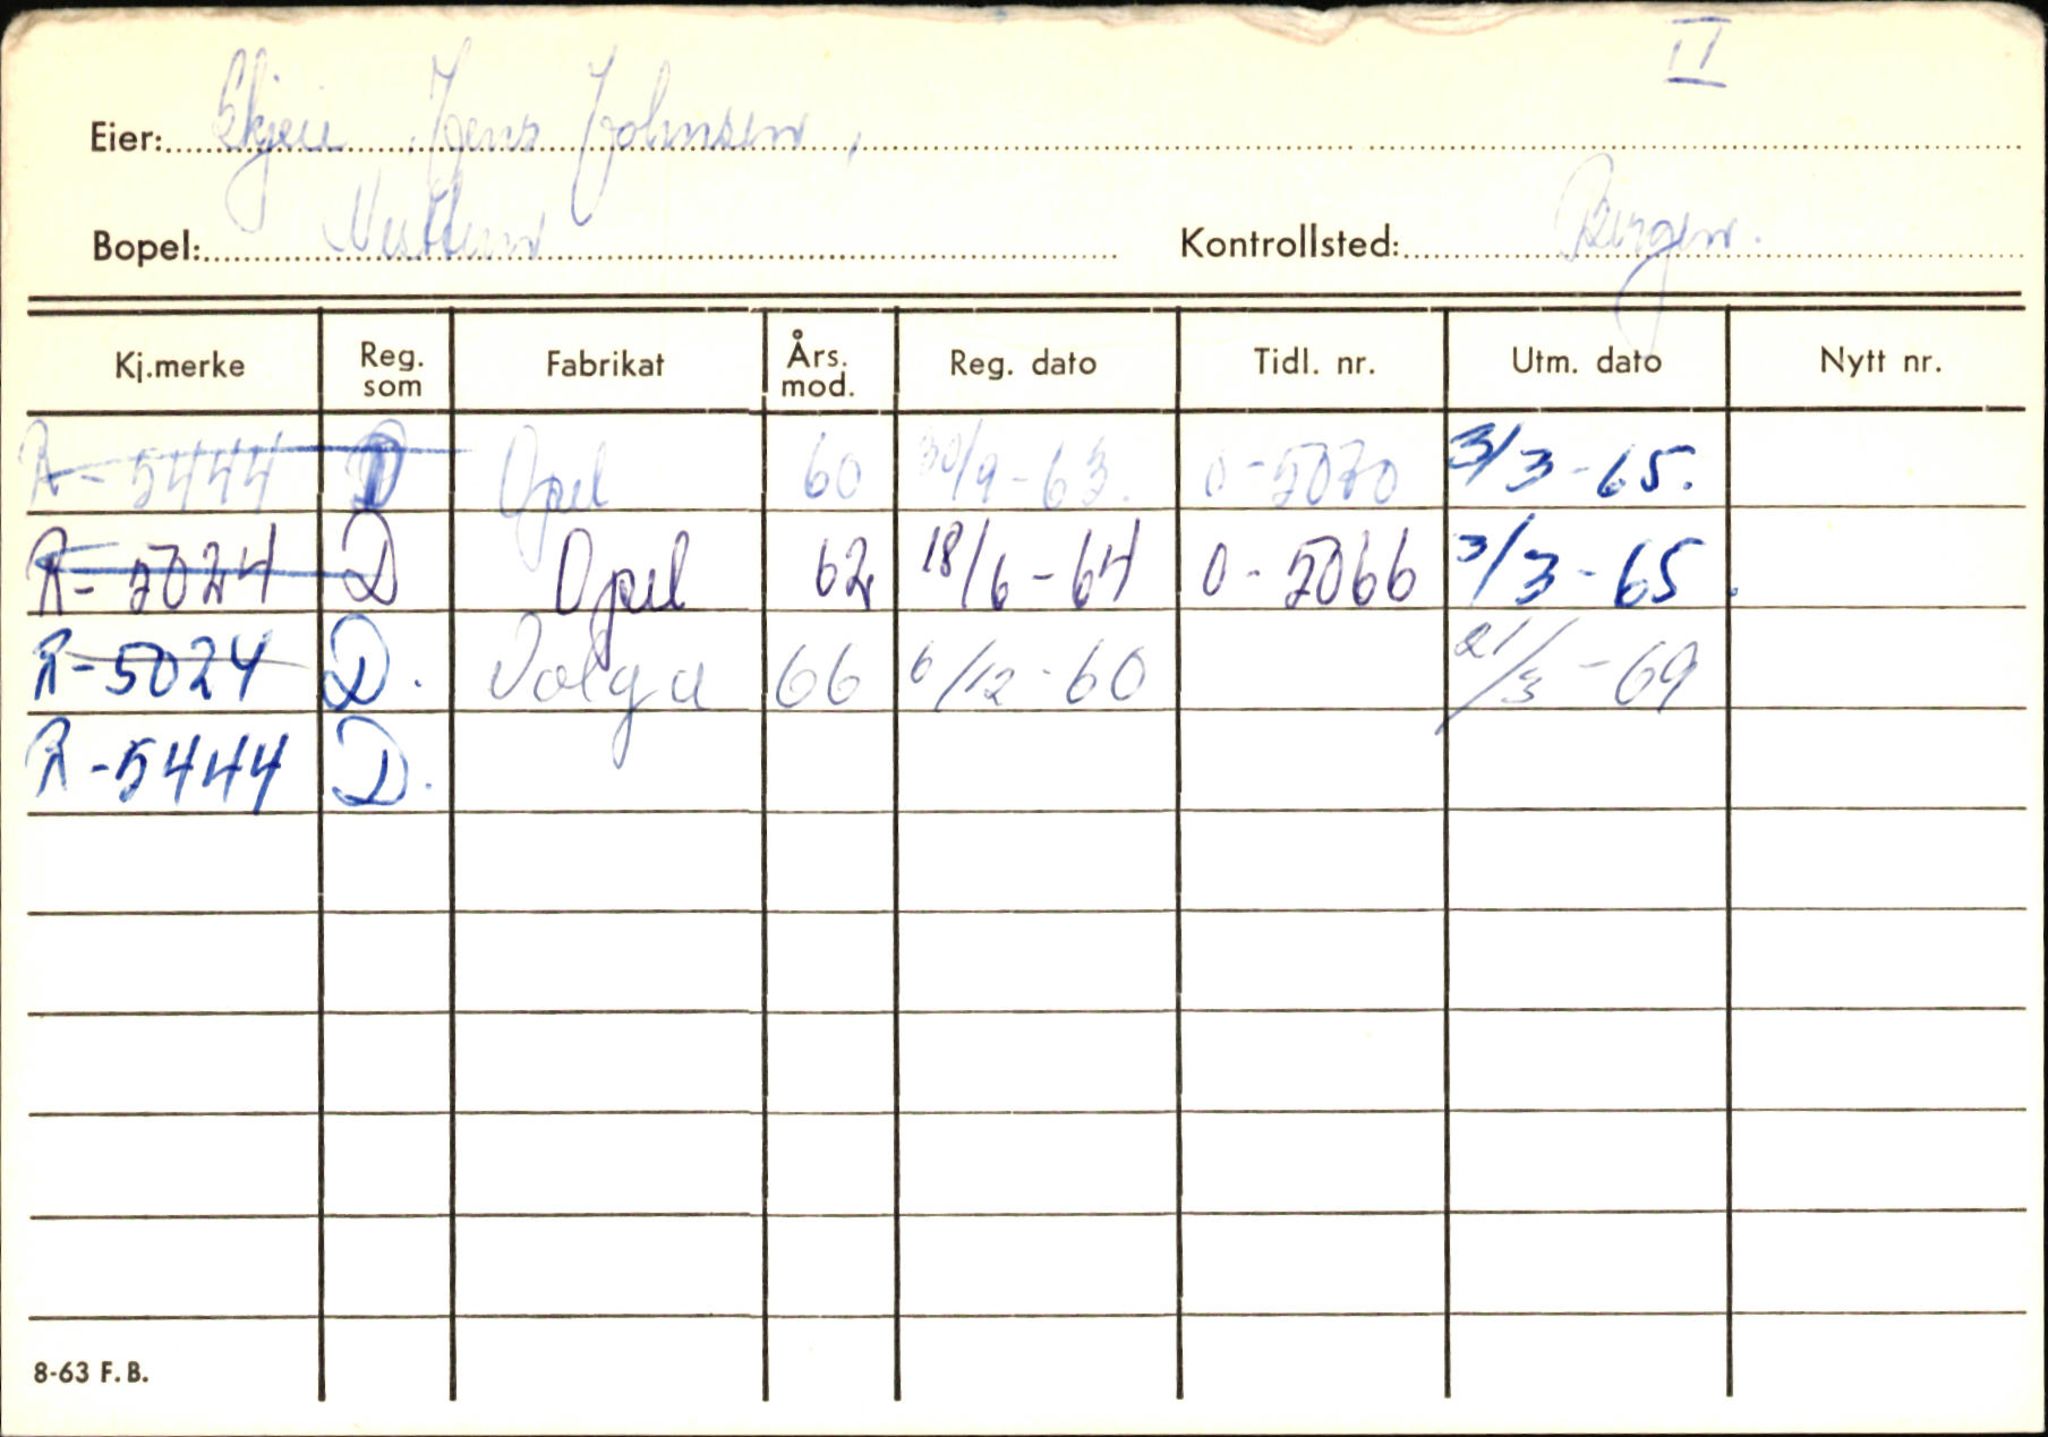 II
Eier: Skjeie Jens Johnsen,
Bopel: Nesttun Kontrollsted: Bergen.
Kj.merke Reg. som Fabrikat Års. mod. Reg. dato Tidl. nr. Utm. dato Nytt nr.
R-5444 D Opel 60 30/9-63. O-5070 3/3-65.
R-5024 D Opel 62 18/6-64 O-5066 3/3-65.
R-5024 D. Volga 66 6/12-60 21/3-69
R-5444 D.
8-63 F.B.